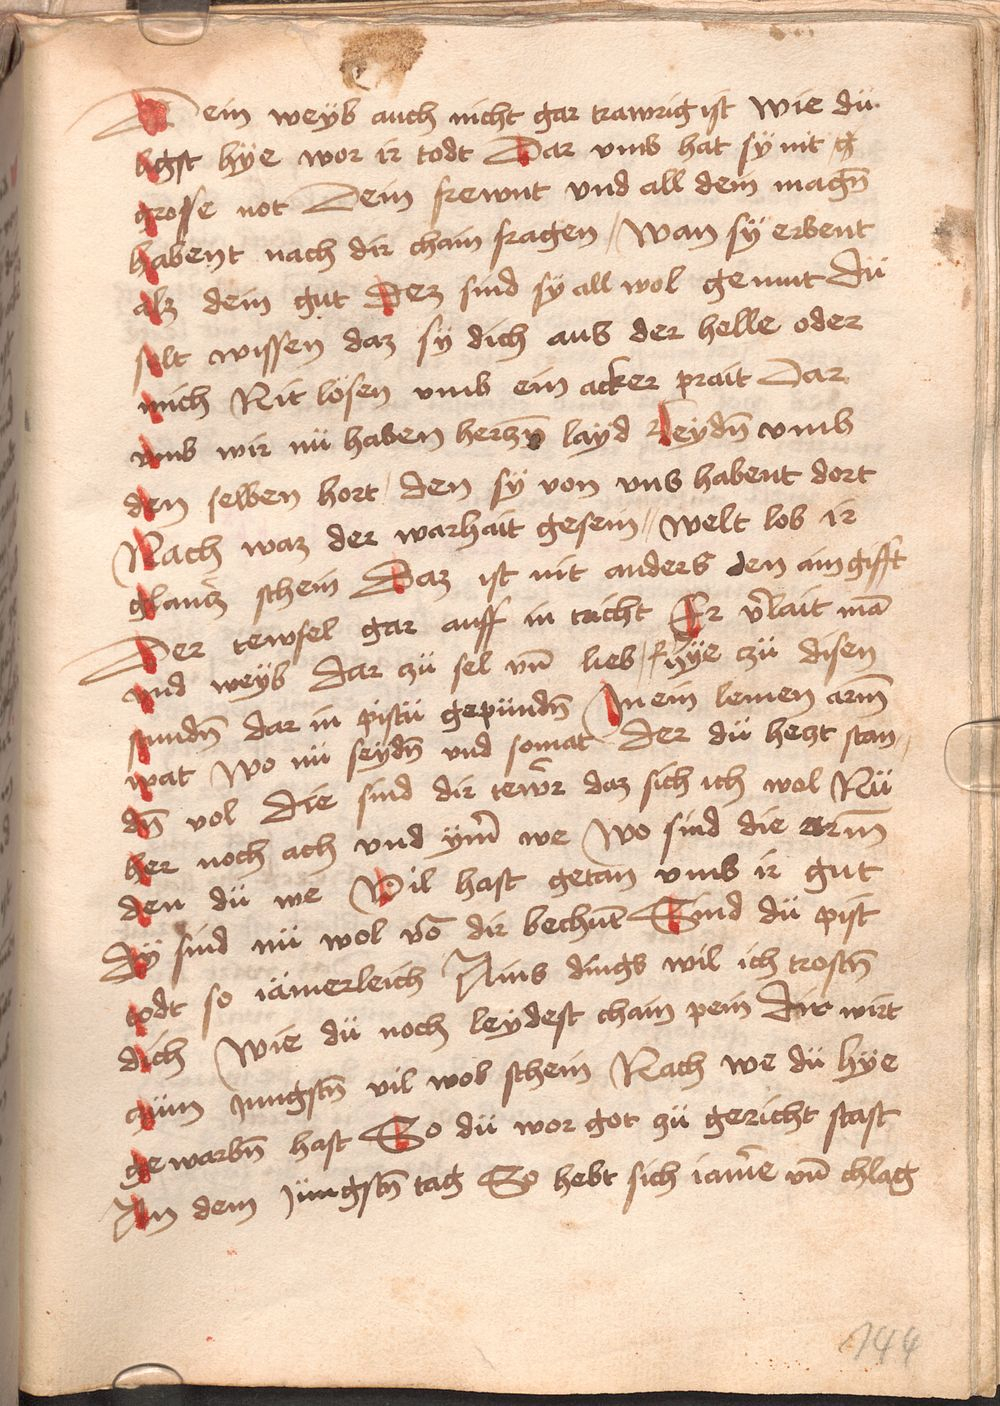 Dein weyb auch nicht gar trawrig ist Wie dü
ligst hÿe wor ir todt Dar vmb hat sÿ nit g
grosse not Dein frewnt vnd all dein magn̄
habent nach dir chain fragen / Wan sÿ erbent
alz dein gut Dez sind sÿ all wol gemut Dü
solt wissen daz sÿ dich aus der helle oder
mich Nit lösen vmb ein acker prait Dar
vmb wir nü haben herczn̄ layd Leydn̄ vmb
den selben hort / den sÿ von vns habent dort
Nach waz der warhait gesein // Welt lob ir
glancz schein Daz ist nit anders den ain gifft
Der tewfel gar auff in tricht Er v̄lait mā
vnd weyb Dar zü sel vn̄ lieb / hÿe zü disen
stundn̄ dar in pistü gepündn̄ In ein leinen arm̄
wat Wo nü seydn̄ vnd somat Der dü hezt stan /
dn̄ vol Die sind dir tewr̄ daz sich ich wol Nü
her noch ach vnd ym̄ we Wo sind die arm̄
den dü we Vil hast getan vmb ir gut
Dÿ sind nü wol vō dir bechūt Sind dü pist
todt so iämerleich Ains dings wil ich trostn̄
dich Wie dü noch leydest chain pein Dir wirt
am Jungstn̄ vil wol schein Nach we dü hÿe
gewarbn̄ hast So dü wor got zü gericht stast
An dem Jüngstn̄ tag So hebt sich iam̄e vn̄ chlag
144